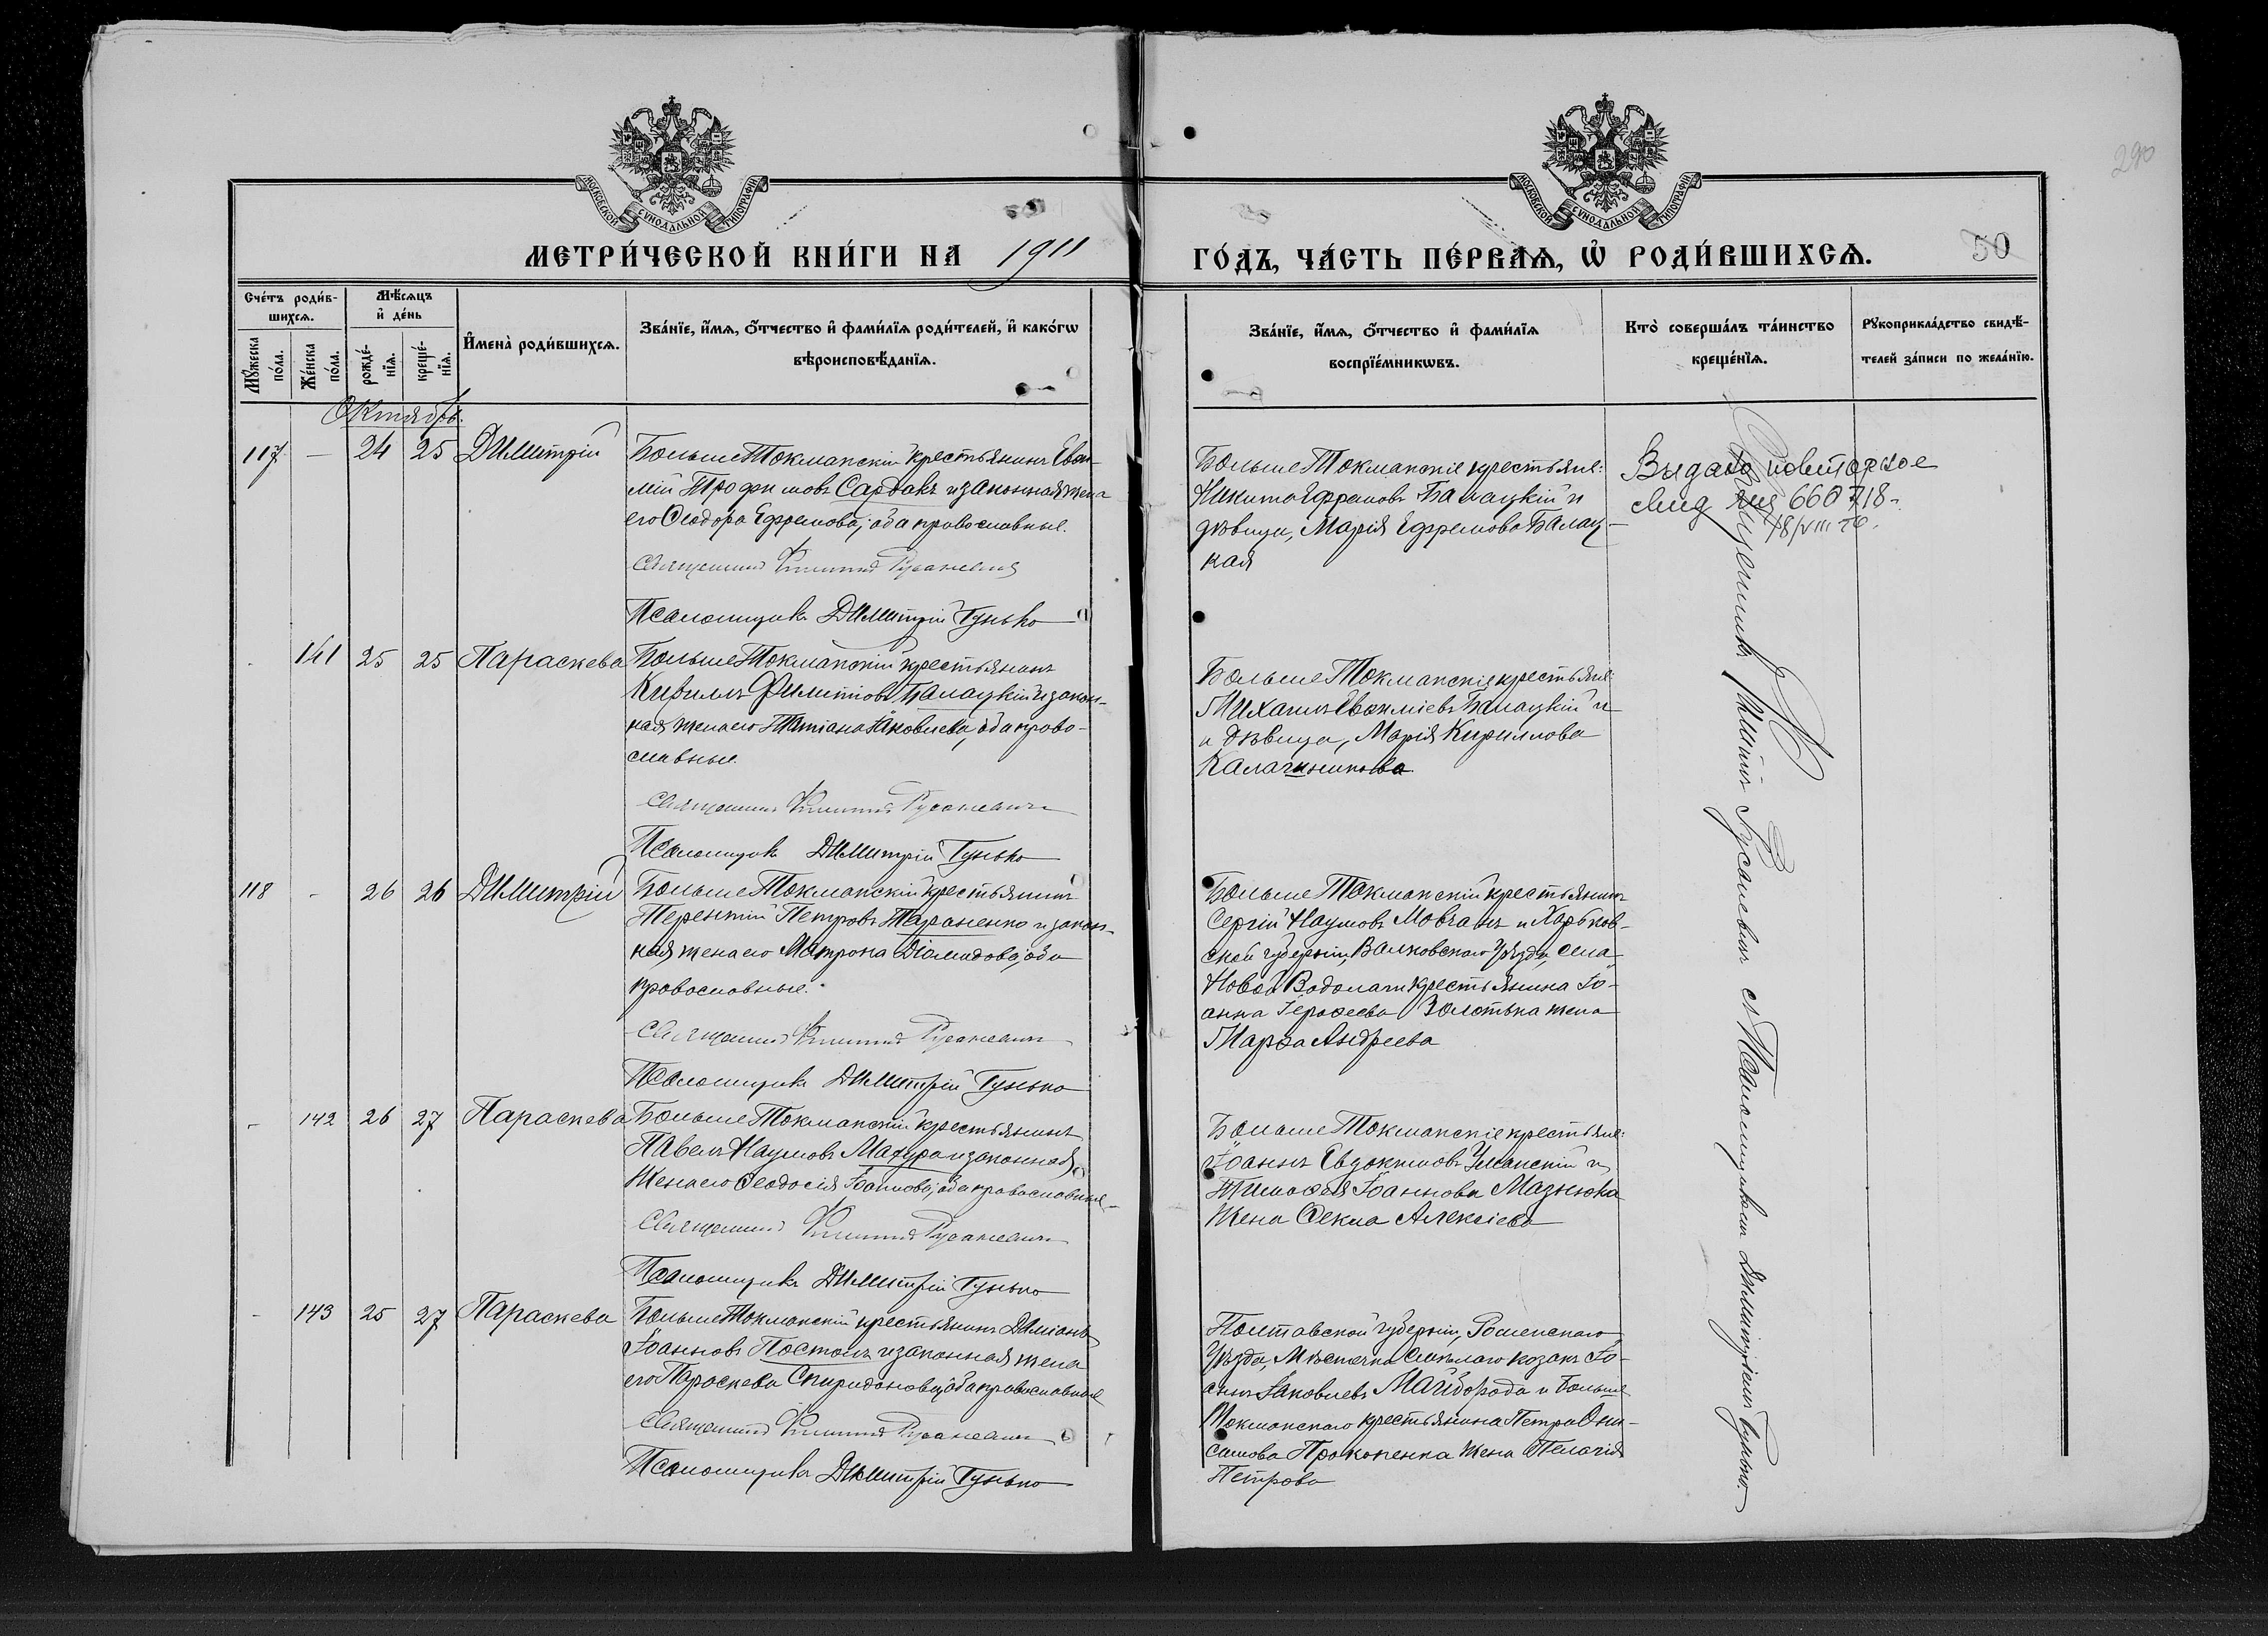 290
МОСКОВСКОЙ СУНОДАЛЬНОЙ ТИПОГРАФІИ
МОСКОВСКОЙ СУНОДАЛЬНОЙ ТИПОГРАФІИ
МЕТРИ́ЧЕСКОЙ КНИ́ГИ НА 1911
ГО́ДЪ, ЧА́СТЬ ПЕ́РВАѦ, Ѡ҆ РОДИ́ВШИХСѦ.
50
Сче́тъ роди́в-
шихсѧ.
Мꙋ́жеска по́ла.
Же́нска по́ла.
Мѣ́сѧцъ
и҆ де́нь
рожде́-
нїѧ.
креще́-
нїѧ.
И҆мена̀ роди́вшихсѧ.
Зва́нїе, и҆́мѧ, ѻ҆́тчество и҆ фами́лїѧ роди́телей, и҆ како́гѡ
вѣроисповѣ́данїѧ.
Зва́нїе, и҆́мѧ, ѻ҆́тчество и҆ фами́лїѧ
воспрїе́мникѡвъ.
Кто̀ соверша́лъ та́инство
креще́нїѧ.
Рꙋкоприкла́дство свидѣ́-
телей за́писи по жела́нїю.
Октябрь.
117 — 24 25 Димитрій
БольшеТокмакскій крестьянинъ Евѳи-
мій Трофимовъ Сардакъ и законная жена
его Ѳеодора Ефремова, оба православные.
Священникъ Русаневичъ
Псаломщикъ Димитрій Гунько
БольшеТокмакскіе крестьяне:
Никита Ефремовъ Балацкій и
дѣвица, Марія Ефремова Балац-
кая
Выдано повторное
свид 660718-
18/VIII
141 25 25 Параскева
БольшеТокмакскій крестьянинъ
Кириллъ Филиповъ Балацкій и закон-
ная жена его Татіана Іаковлева, оба право-
славные.
Священникъ Русаневичъ
Псаломщикъ Димитрій Гунько
БольшеТокмакскіе крестьяне:
Михаилъ Евѳиміевъ Балацкій и
и дѣвица, Марія Кириллова
Калачникова
118 - 26 26 Димитрій
БольшеТокмакскій крестьянинъ
Терентій Петровъ Тараненко и закон-
ная жена его Матрона Діомидова, оба
православные.
Священникъ Русаневичъ
Псаломщикъ Димитрій Гунько
БольшеТокмакскій крестьянинъ
Сергій Наумовъ Мовчанъ и Харьков-
ской губерніи, Валковскаго уѣзда, села
Новой Водолаги крестьянина Іо-
анна Іероѳеева Золотька жена
Марѳа Андреева
- 142 26 27 Параскева
БольшеТокмакскій крестьянинъ
Павелъ Наумовъ Мазура и законная
жена его Ѳеодосія Іоаннова, оба православные
Священникъ Русаневичъ
Псаломщикъ Димитрій Гунько
БольшеТокмакскіе крестьяне:
Іоаннъ Евдокимовъ Уманскій и
Тимоѳея Іоаннова Мазнюка
жена Ѳекла Алексіева
- 143 25 27 Параскева
БольшеТокмакскій крестьянинъ Даміанъ
Іоанновъ Постолъ и законная жена
его Параскева Спиридонова, оба православные
Священникъ Русаневичъ
Псаломщикъ Димитрій Гунько
Полтавской губерніи, Роменскаго
уѣзда, мѣстечка Смѣлаго козакъ Іо-
аннъ Іаковлевъ Майборода и Больше
Токмакскаго крестьянина Петра Они-
симова Прокопенка жена Пелагія
Петрова
Священникъ Русаневичъ съ Псаломщикомъ Димитріемъ Гунько.